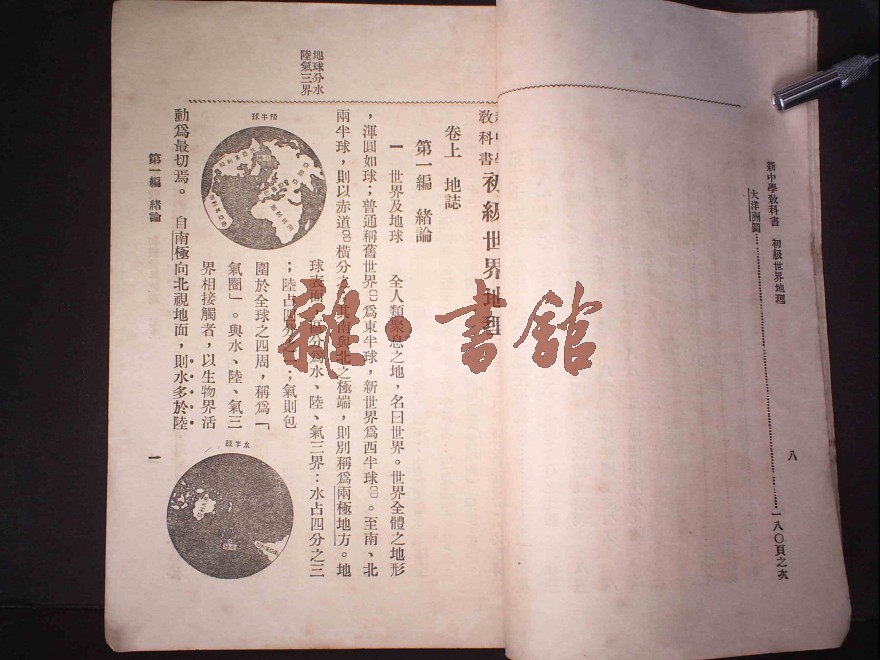 新中學教科書 初級世界地理
大洋洲圖……一八〇頁之次
八
教科書 初級世界地理
卷上 地誌
第一編 緒論
一 世界及地球 全人類聚息之地，名曰世界。世界全體之地形
，渾圓如球；普通稱舊世界㈠爲東半球，新世界爲西半球㈡。至南、北
兩半球，則以赤道㈢橫分之。其南與北之極端，則別稱爲兩極地方。地
球表面，區分爲水、陸、氣三界：水占四分之三
；陸占四界之一；氣則包
圍於全球之四周，稱爲「
氣圈」。與水、陸、氣三
界相接觸者，以生物界活
動爲最切焉。 自南極向北視地面，則水多於陸
地球分水
陸氣三界
陸半球
水半球
第一編 緒論
一
雜·書館